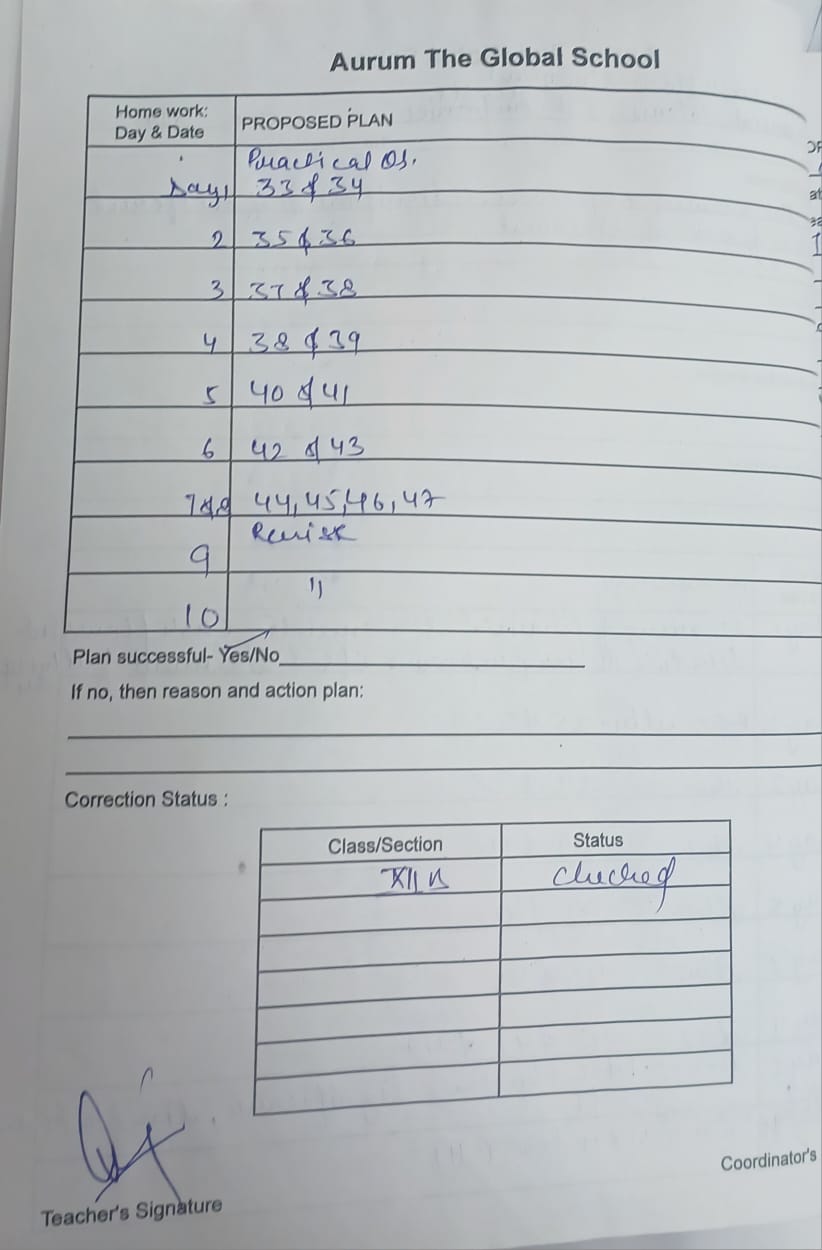 Aurum The Global School
Home work:
Day & Date
PROPOSED PLAN
Practical Qs.
Day 1 33 & 34
2 35 & 36
3 37 & 38
4 38 & 39
5 40 & 41
6 42 & 43
7&8 44, 45, 46, 47
Revise
9
"
10
Plan successful- Yes/No
If no, then reason and action plan:
Correction Status :
Class/Section Status
XII Checked
Teacher's Signature
Coordinator's